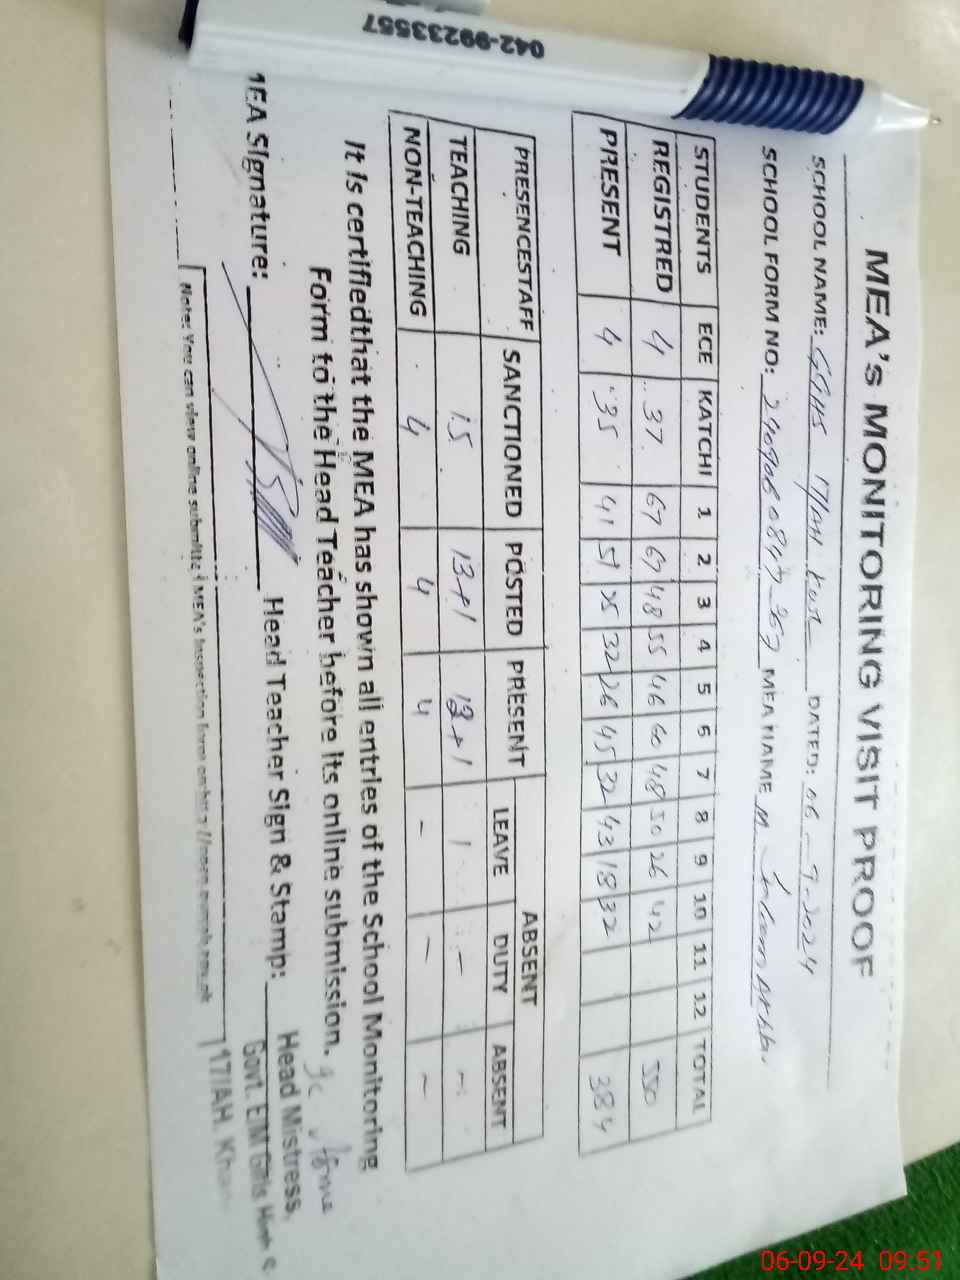 042-99233557
MEA's MONITORING VISIT PROOF
SCHOOL NAME: GGHS 17/AH KWL DATED: 06-9-2024
SCHOOL FORM NO: MEA NAME M
STUDENTS ECE KATCHI 1 2 3 4 5 6 7 8 9 10 11 12 TOTAL
REGISTRED 4 37 67 67 48 55 46 60 48 50 26 42 550
PRESENT 4 35 41 51 25 32 26 45 32 43 18 32 384
PRESENCESTAFF SANCTIONED POSTED PRESENT ABSENT
LEAVE DUTY ABSENT
TEACHING 15 13+1 12+1 1 - -
NON-TEACHING 4 4 4 - - -
It is certifiedthat the MEA has shown all entries of the School Monitoring
Form to the Head Teacher before its online submission.
1EA Signature: Head Teacher Sign & Stamp:
Head Mistress,
Govt. E/M Girls High S
17/AH. Kha
Note: You can view online submitted MEA's Inspection form on
06-09-24 09:51